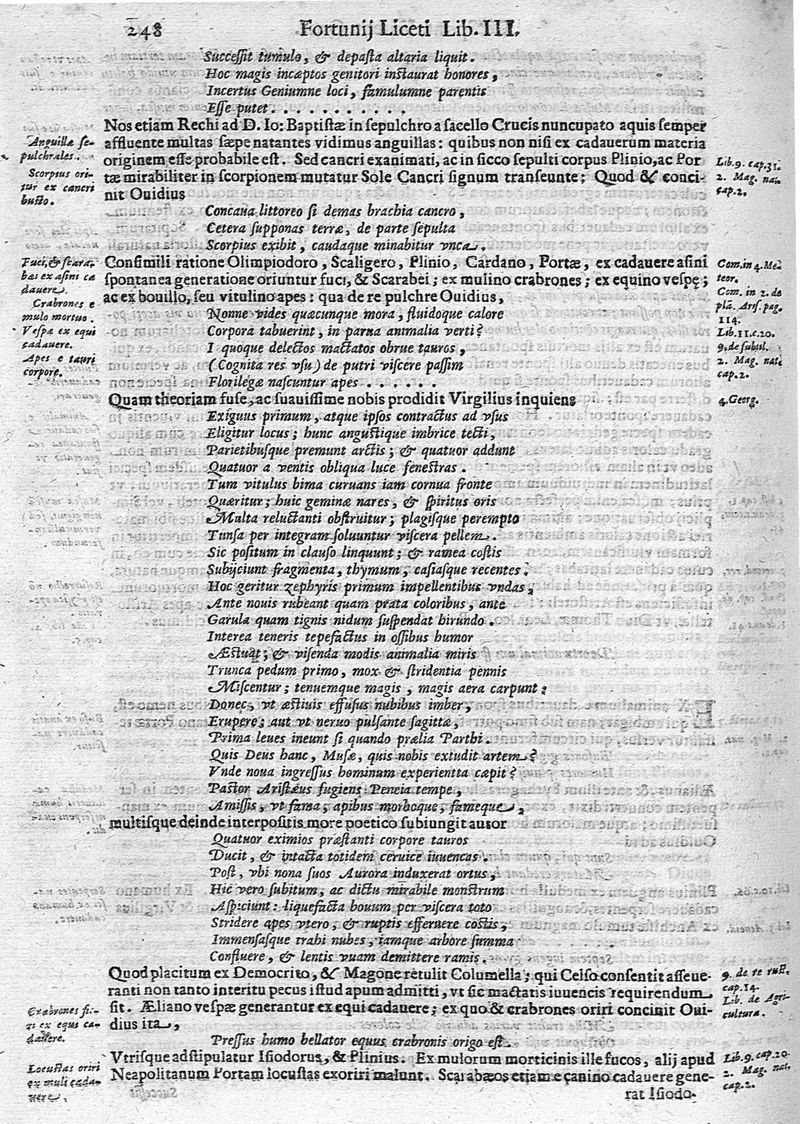 248 Fortunij Liceti Lib. III.
Successit tumulo, & depasta altaria liquit.
Hoc magis inceptos genitori instaurat honores,
Incertus Geniumne loci, famulumne parentis
Esse putet. . . . . . . . . . . .
Nos etiam Rechi ad D. Io: Baptistæ in sepulchro a sacello Crucis nuncupato aquis semper
affluente multas sæpe natantes vidimus anguillas: quibus non nisi ex cadauerum materia
originem esse probabile est. Sed cancri exanimati, ac in sicco sepulti corpus Plinio, ac Por
tæ mirabiliter in scorpionem mutatur Sole Cancri signum transeunte; Quod & conci-
nit Ouidius
Anguillæ se-
pulchrales.
Scorpius ori-
tur ex cancri
busto.
Lib. 9. cap. 31.
2. Mag. nat.
cap. 2.
Concaua littoreo si demas brachia cancro,
Cetera supponas terræ, de parte sepulta
Scorpius exibit, caudaque minabitur vnca.
Consimili ratione Olimpiodoro, Scaligero, Plinio, Cardano, Portæ, ex cadauere asini
spontanea generatione oriuntur fuci, & Scarabei; ex mulino crabrones; ex equino vespę;
ac ex bouillo, seu vitulino apes: qua de re pulchre Ouidius,
Fuci, & scara-
bæi ex asini ca
dauere.
Crabrones e
mulo mortuo.
Vespæ ex equi
cadauere.
Apes e tauri
corpore.
Com. in 4. Me
teor.
Com. in 2. de
plā. Arist. pag.
114.
Lib. 11. c. 20.
9. de subtil.
2. Mag. nat.
cap. 2.
Nonne vides quacunque mora, fluidoque calore
Corpora tabuerint, in parua animalia verti?
I quoque delectos mactatos obrue tauros,
(Cognita res vsu) de putri viscere passim
Florilegæ nascuntur apes . . . . . .
Quam theoriam fuse, ac suauissime nobis prodidit Virgilius inquiens
4. Georg.
Exiguus primum, atque ipsos contractus ad vsus
Eligitur locus; hunc angustique imbrice tecti,
Parietibusque premunt arctis; & quatuor addunt
Quatuor a ventis obliqua luce fenestras.
Tum vitulus bima curuans iam cornua fronte
Quæritur; huic geminæ nares, & spiritus oris
Multa reluctanti obstruitur; plagisque perempto
Tunsa per integram soluuntur viscera pellem.
Sic positum in clauso linquunt; & ramea costis
Subijciunt fragmenta, thymum, casiasque recentes.
Hoc geritur zephyris primum impellentibus vndas,
Ante nouis rubeant quam prata coloribus, ante
Garula quam tignis nidum suspendat birundo.
Interea teneris tepefactus in ossibus humor
Æstuat; & visenda modis animalia miris
Trunca pedum primo, mox & stridentia pennis
Miscentur; tenuemque magis, magis aera carpunt:
Donec, vt æstiuis effusus nubibus imber,
Erupere; aut vt neruo pulsante sagittæ,
Prima leues ineunt si quando prælia Parthi.
Quis Deus hanc, Musæ, quis nobis extudit artem?
Vnde noua ingressus hominum experientta cæpit?
Pastor Aristæus fugiens Peneia tempe,
Amissis, vt fama, apibus morboque, fameque,
multisque deinde interpositis more poetico subiungit autor
Quatuor eximios præstanti corpore tauros
Ducit, & intacta totidem ceruice iuuencas.
Post, vbi nona suos Aurora induxerat ortus,
Hic vero subitum, ac dictu mirabile monstrum
Aspiciunt: liquefacta bouum per viscera toto
Stridere apes vtero, & ruptis efferuere costis,
Immensasque trahi nubes, iamque arbore summa
Confluere, & lentis vuam demittere ramis.
Quod placitum ex Democrito, & Magone retulit Columella; qui Celso consentit asseue-
ranti non tanto interitu pecus istud apum admitti, vt sic mactatis iuuencis requirendum
sit. Æliano vespæ generantur ex equi cadauere; ex quo & crabrones oriri concinit Oui-
dius ita,
Crabrones fie-
ri ex equi ca-
dauere.
9. de re rust.
cap. 14.
Lib. de Agri-
cultura.
Pressus humo bellator equus crabronis origo est.
Vtrisque adstipulatur Isiodorus, & Plinius. Ex mulorum morticinis ille fucos, alij apud
Neapolitanum Portam locustas exoriri malunt. Scarabæos etiam e canino cadauere gene-
rat Isiodo-
Locustas oriri
ex muli cada-
uere.
Lib. 9. cap. 20
2. Mag. nat.
cap. 2.